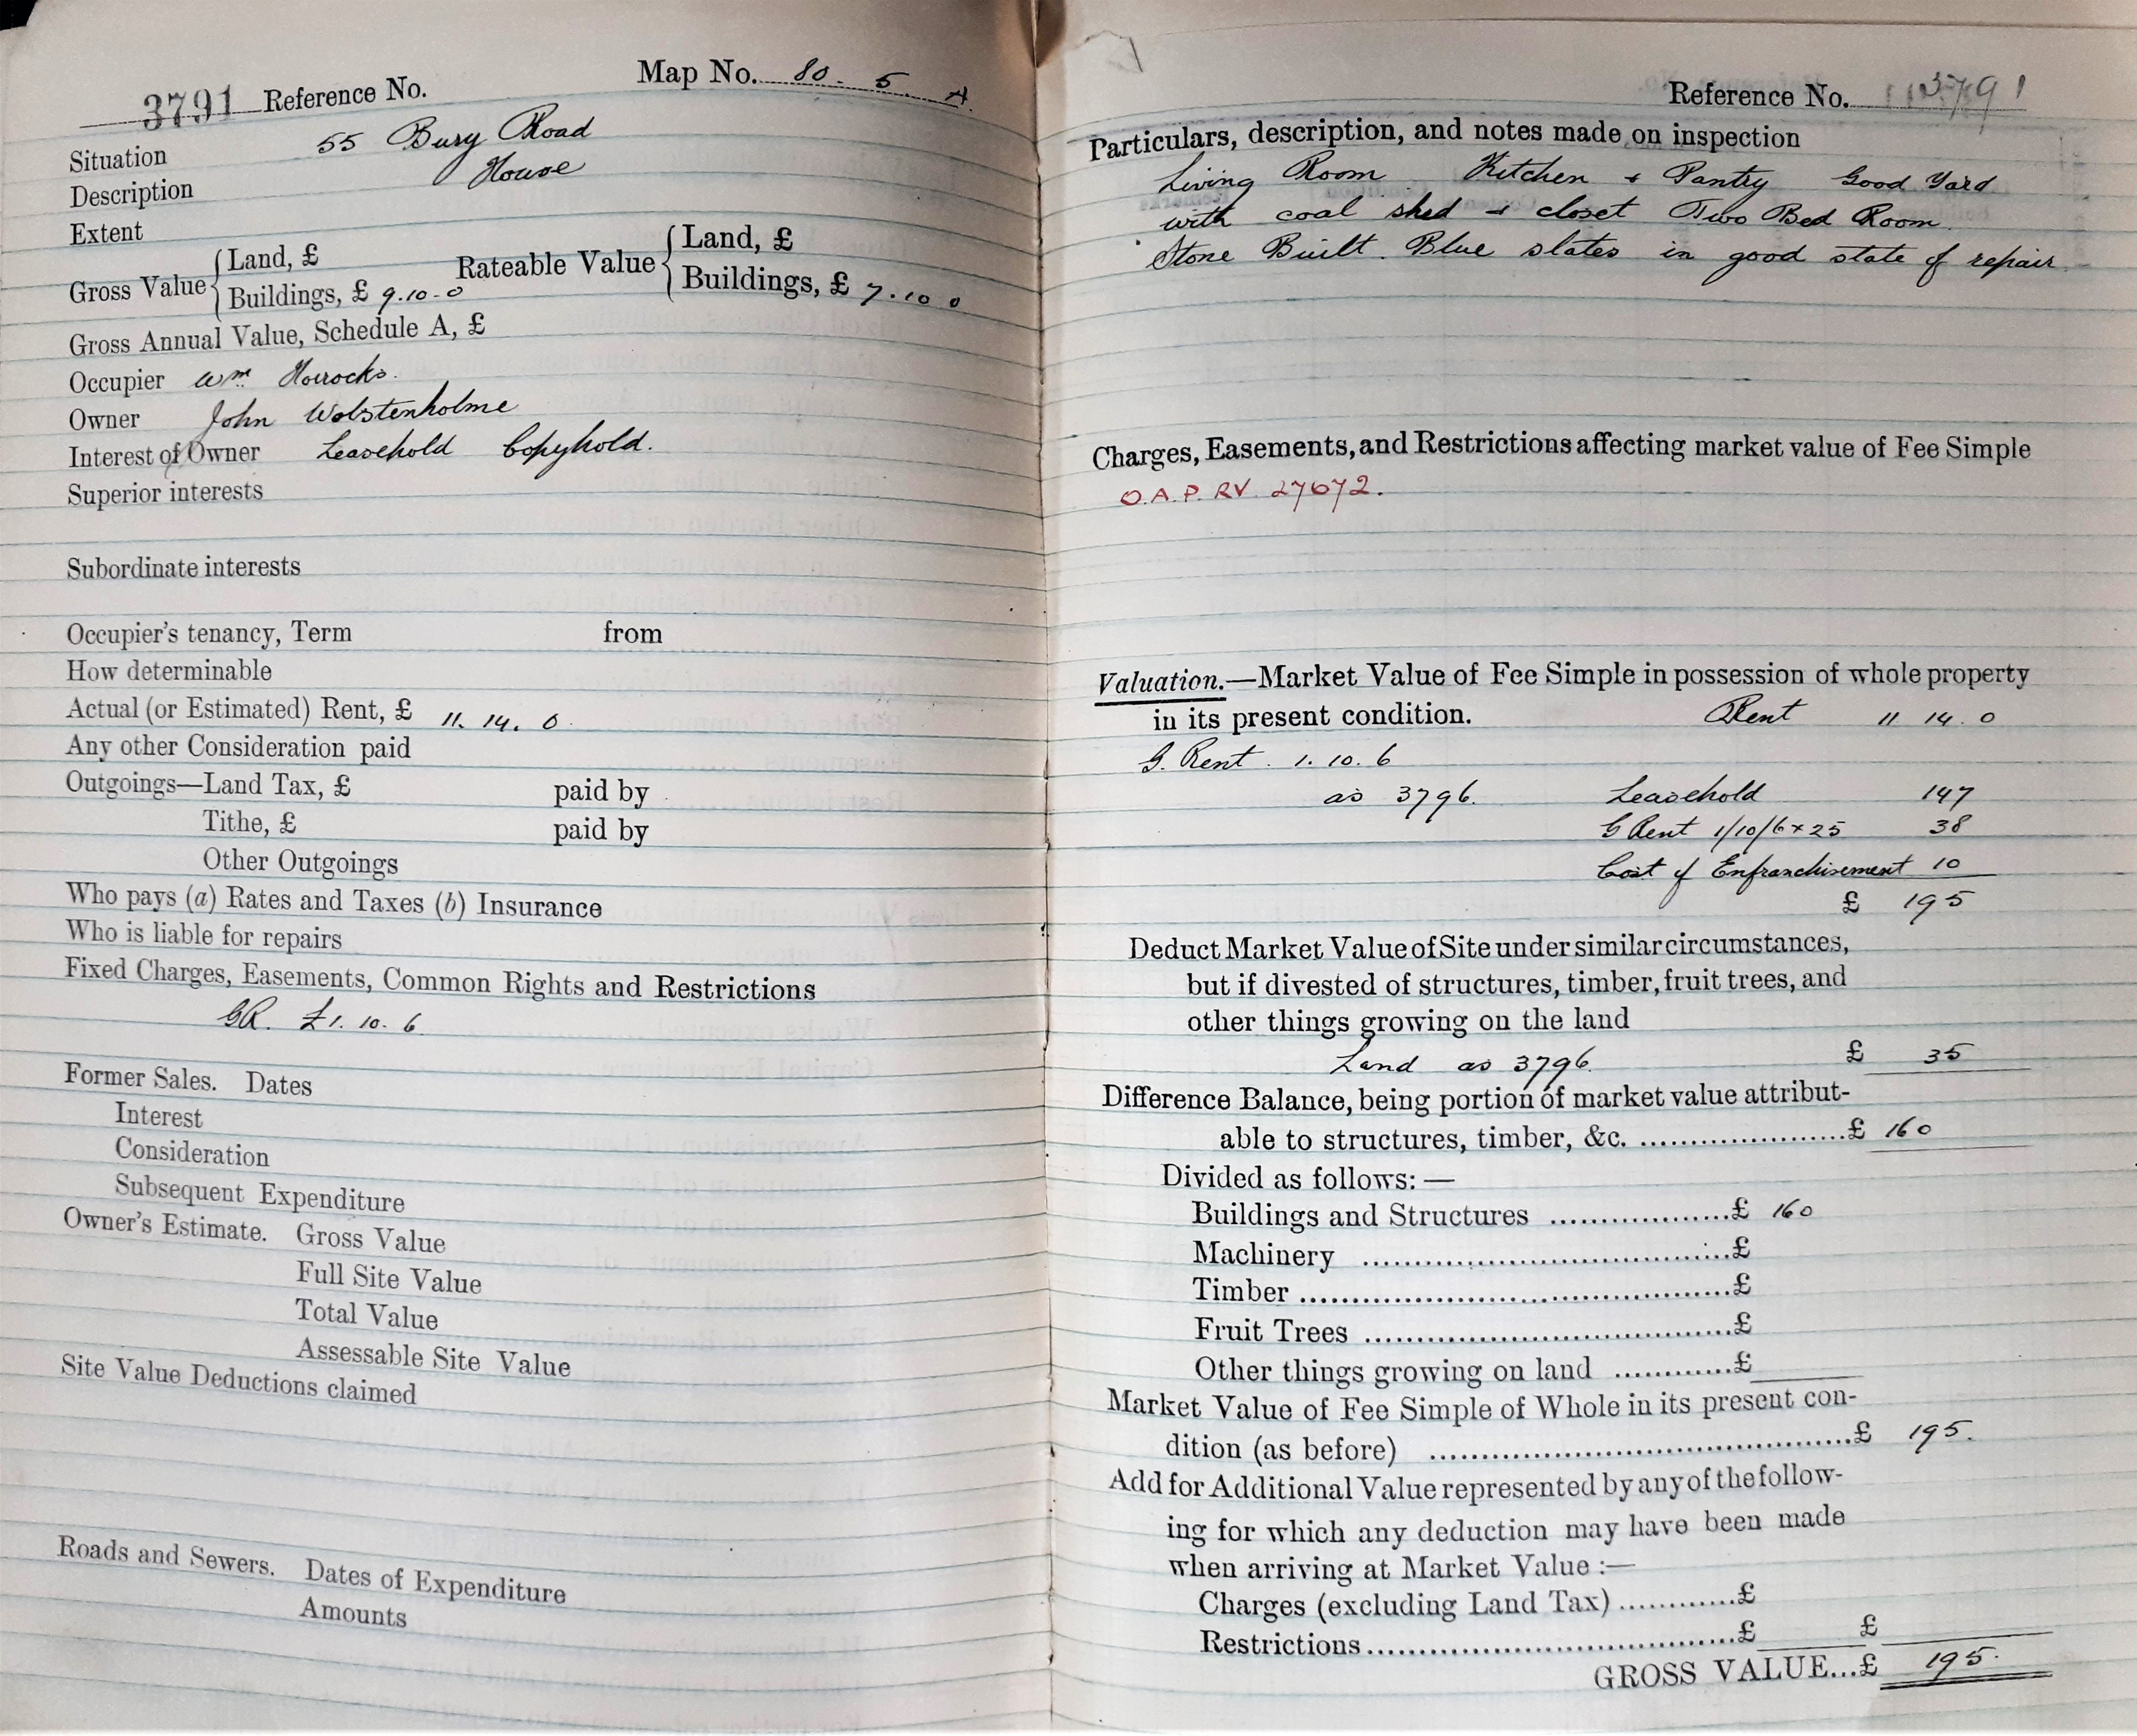 3791 Reference No. Map No. 80. 5 A.
Situation 55 Bury Road
Description House
Extent
Gross Value { Land, £ Rateable Value { Land, £
Buildings, £ 9.10-0 Buildings, £ 7.10 0
Gross Annual Value, Schedule A, £
Occupier Wm Horrocks.
Owner John Wolstenholme
Interest of Owner Leasehold Copyhold.
Superior interests
Subordinate interests
Occupier's tenancy, Term from
How determinable
Actual (or Estimated) Rent, £ 11. 14. 0.
Any other Consideration paid
Outgoings—Land Tax, £ paid by
Tithe, £ paid by
Other Outgoings
Who pays (a) Rates and Taxes (b) Insurance
Who is liable for repairs
Fixed Charges, Easements, Common Rights and Restrictions
GR. £1. 10. 6
Former Sales. Dates
Interest
Consideration
Subsequent Expenditure
Owner's Estimate. Gross Value
Full Site Value
Total Value
Assessable Site Value
Site Value Deductions claimed
Roads and Sewers. Dates of Expenditure
Amounts
Reference No. 3791
Particulars, description, and notes made on inspection
Living Room Kitchen + Pantry Good Yard
with coal shed + closet Two Bed Room
Stone Built. Blue slates in good state of repair
Charges, Easements, and Restrictions affecting market value of Fee Simple
O.A.P. RV. 27672.
Valuation.—Market Value of Fee Simple in possession of whole property
in its present condition. Rent 11 14. 0
G. Rent. 1. 10. 6
as 3796. Leasehold 147
G Rent 1/10/6 × 25 38
Cost of Enfranchisement 10
£ 195
Deduct Market Value of Site under similar circumstances,
but if divested of structures, timber, fruit trees, and
other things growing on the land
Land as 3796. £ 35
Difference Balance, being portion of market value attribut-
able to structures, timber, &c. ......................£ 160
Divided as follows:—
Buildings and Structures ..................£ 160
Machinery ....................................£
Timber ...........................................£
Fruit Trees .....................................£
Other things growing on land ............£
Market Value of Fee Simple of Whole in its present con-
dition (as before) ..........................................£ 195.
Add for Additional Value represented by any of the follow-
ing for which any deduction may have been made
when arriving at Market Value :—
Charges (excluding Land Tax) ............£
Restrictions.....................................£ £
GROSS VALUE...£ 195.